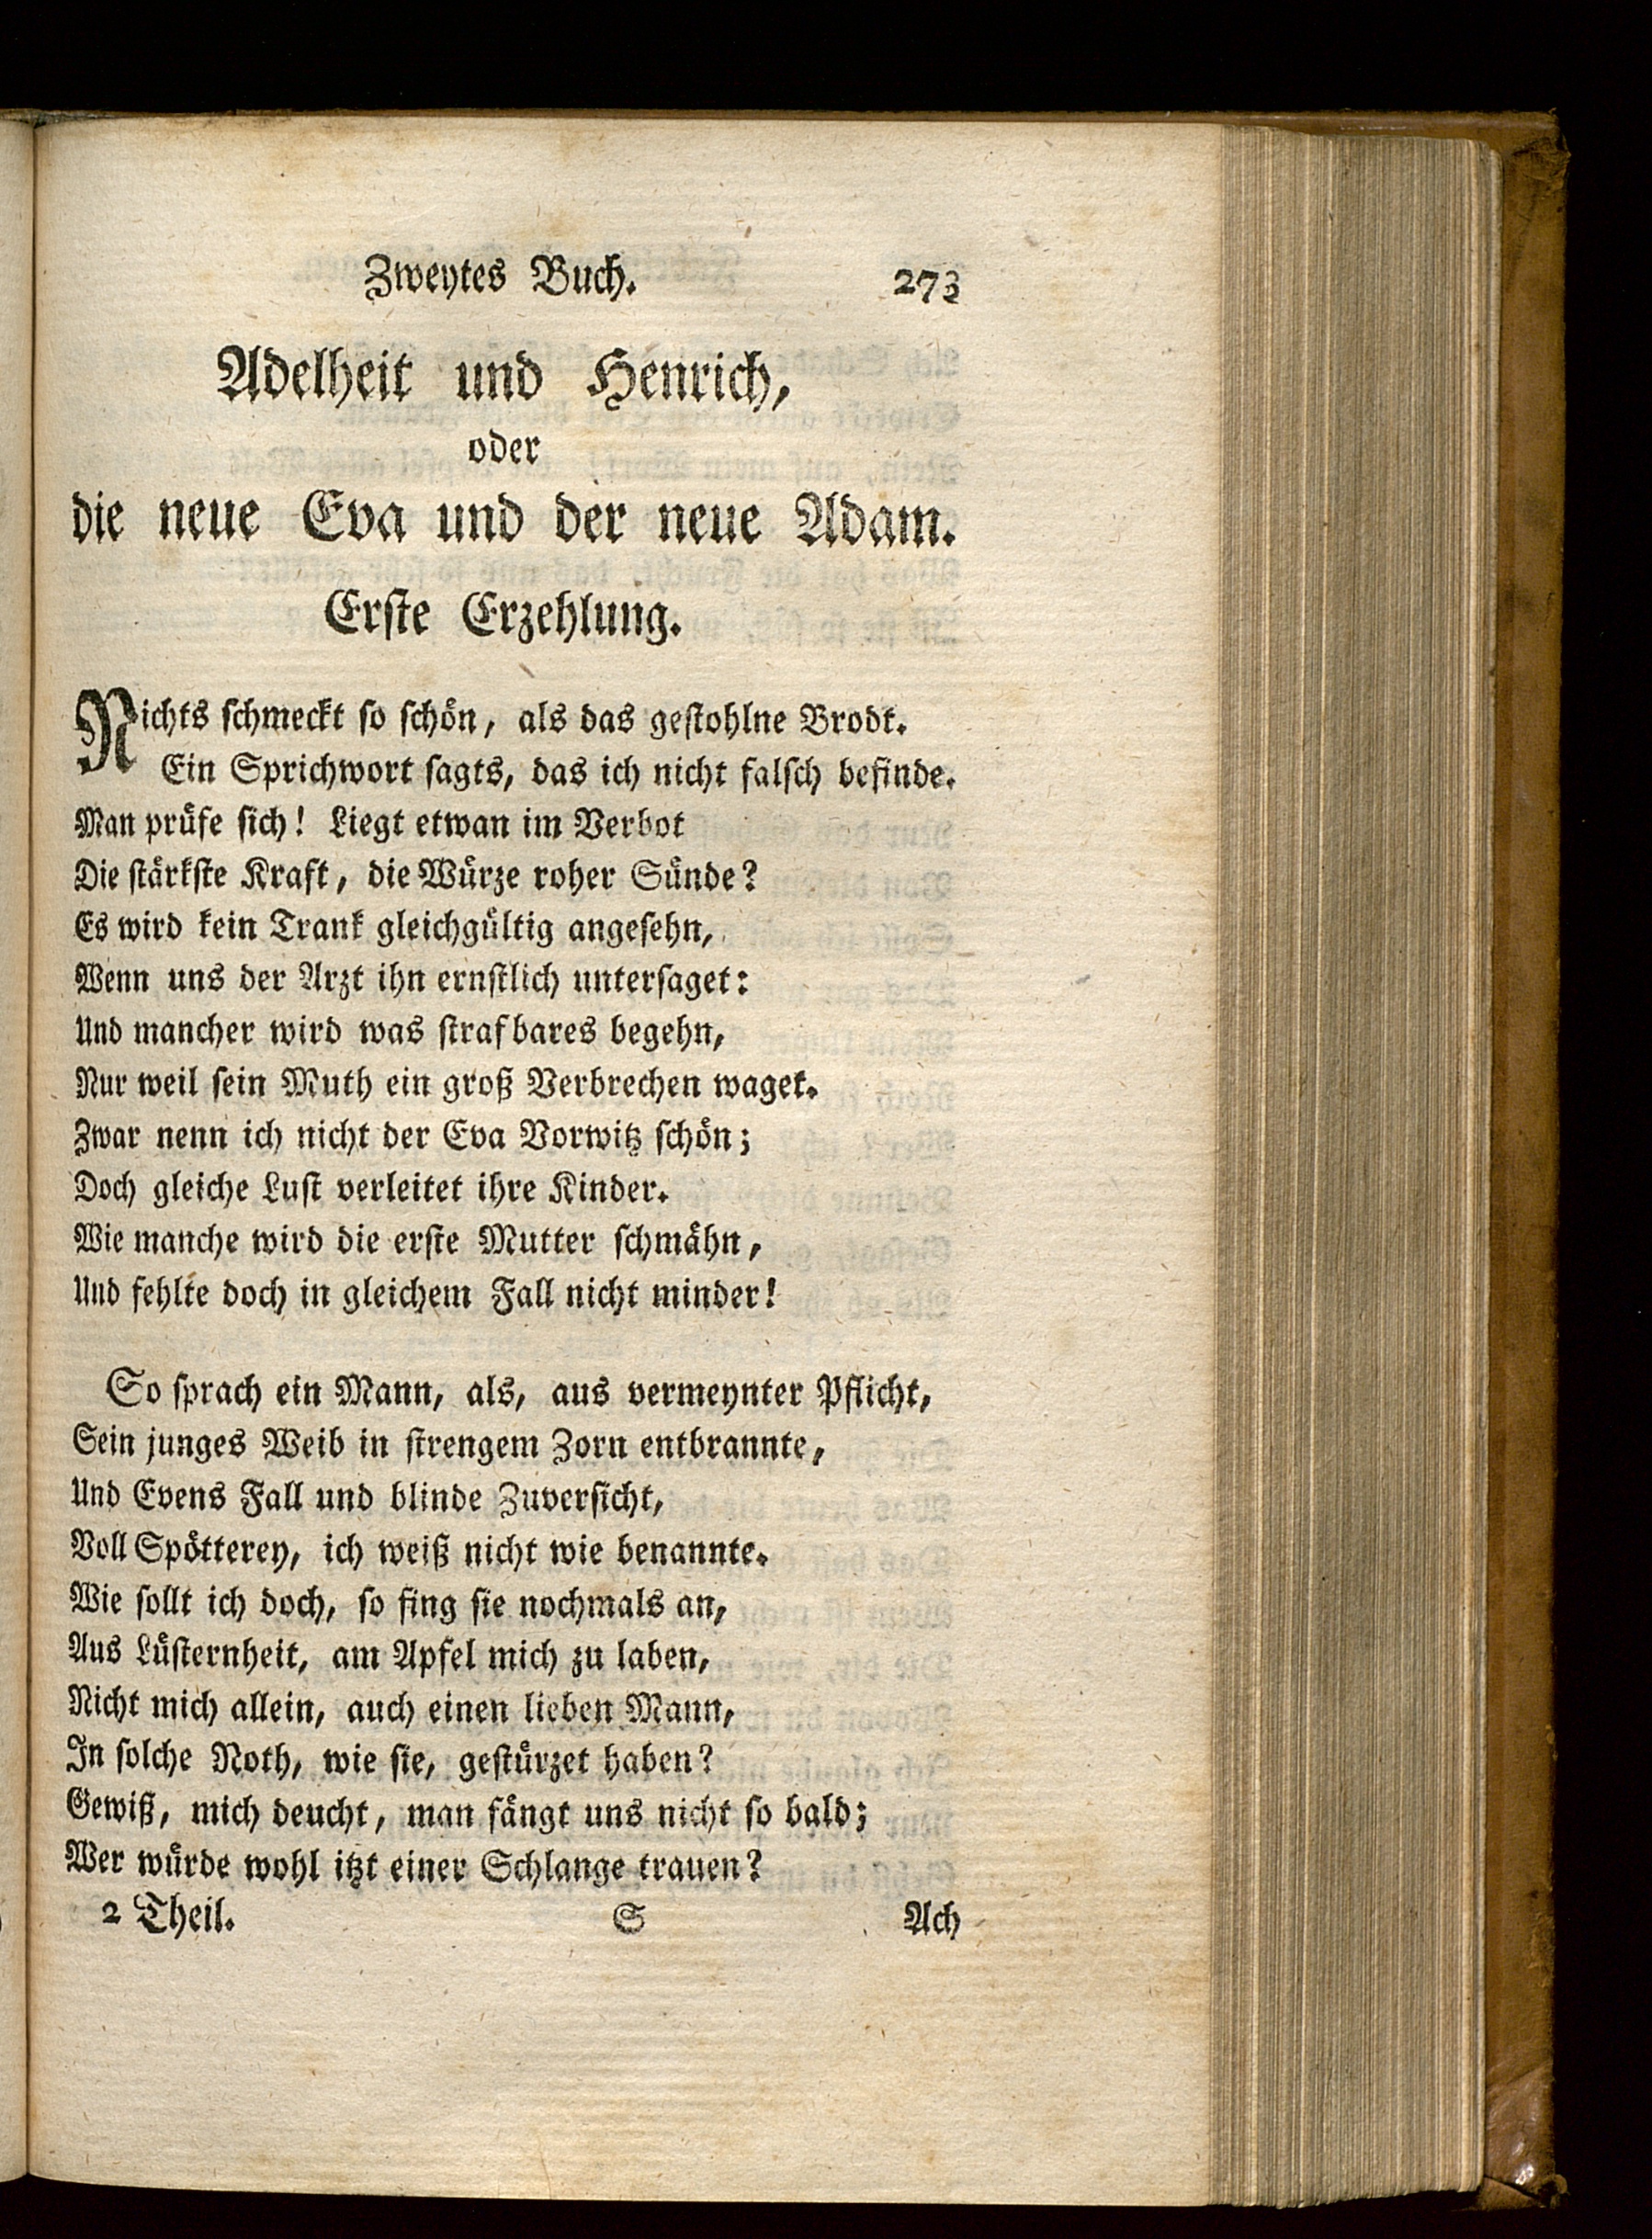 Zweytes Buch. 273
Adelheit und Henrich,
oder
die neue Eva und der neue Adam.
Erste Erzehlung.
Nichts schmeckt so schön, als das gestohlne Brodt.
Ein Sprichwort sagts, das ich nicht falsch befinde.
Man prüfe sich! Liegt etwan im Verbot
Die stärkste Kraft, die Würze roher Sünde?
Es wird kein Trank gleichgültig angesehn,
Wenn uns der Arzt ihn ernstlich untersaget:
Und mancher wird was strafbares begehn,
Nur weil sein Muth ein groß Verbrechen waget.
Zwar nenn ich nicht der Eva Vorwitz schön;
Doch gleiche Lust verleitet ihre Kinder.
Wie manche wird die erste Mutter schmähn,
Und fehlte doch in gleichem Fall nicht minder!
So sprach ein Mann, als, aus vermeynter Pflicht,
Sein junges Weib in strengem Zorn entbrannte,
Und Evens Fall und blinde Zuversicht,
Voll Spötterey, ich weiß nicht wie benannte.
Wie sollt ich doch, so fing sie nochmals an,
Aus Lüsternheit, am Apfel mich zu laben,
Nicht mich allein, auch einen lieben Mann,
In solche Noth, wie sie, gestürzet haben?
Gewiß, mich deucht, man fängt uns nicht so bald;
Wer würde wohl itzt einer Schlange trauen?
2 Theil. S Ach